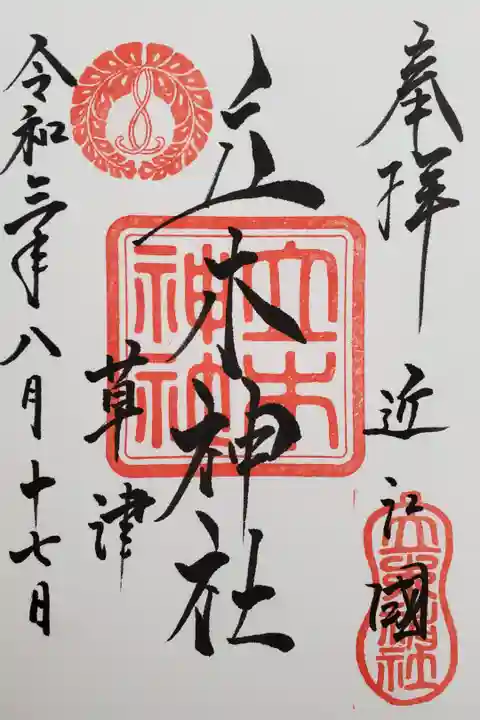 奉拝
近江國
立木神社
立木神社
草津
令和三年八月十七日